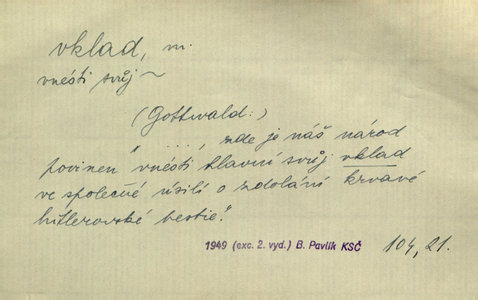 vklad, m.
vnésti svůj ~
(Gottwald:)
"...., zde je náš národ
povinen vnésti hlavní svůj vklad
ve společné úsilí o zdolání krvavé
hitlerovské bestie."
1949 (exc. 2. vyd.) B. Pavlík KSČ 104, 21.